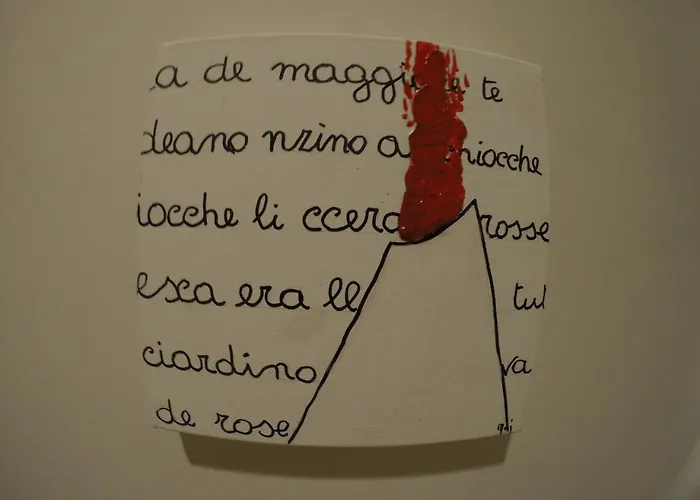 a de maggio te
cleano nzino a schiocche
iocche li ccera rosse
esca era ll tul
ciardino va
de rose